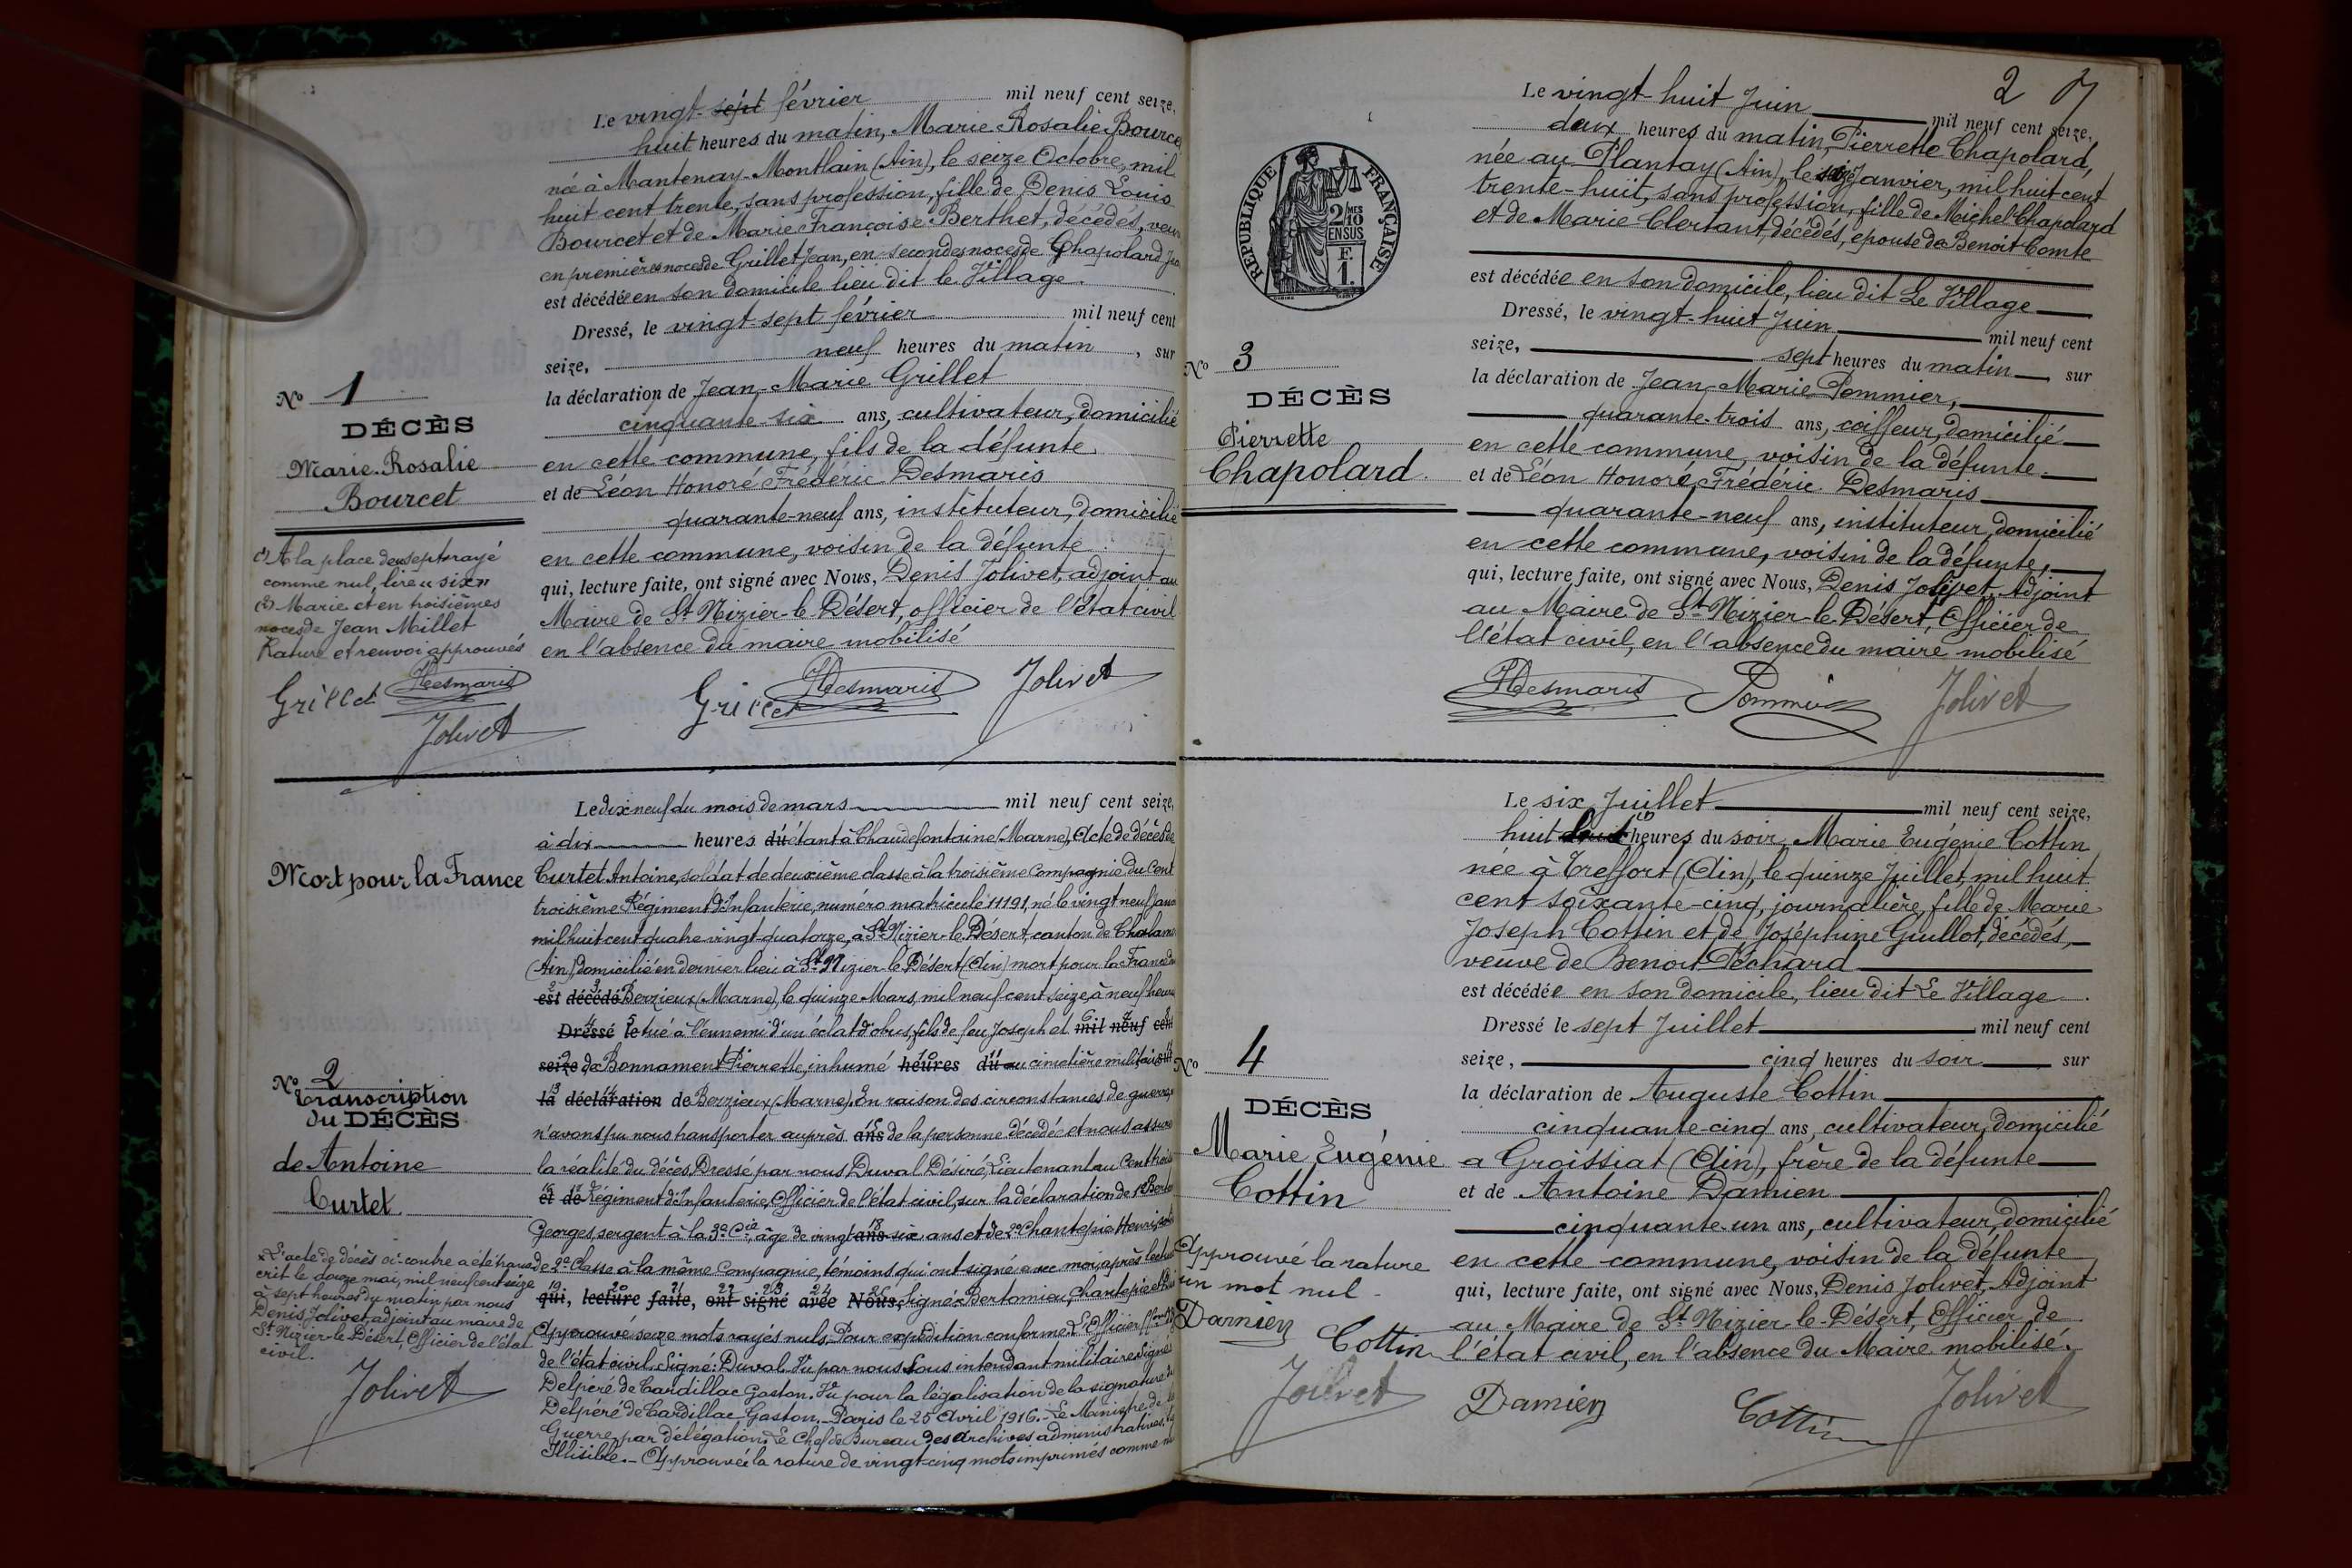 Le vingt-sept février mil neuf cent seize,
huit heures du matin, Marie Rosalie Bource
née à Mantenay-Montlain (Ain), le seize Octobre, mil
huit cent trente, sans profession, fille de Denis Louis
Bourcet et de Marie Françoise Berthet, décédés, veuv
en premières noces de Grillet Jean, en secondes noces de Chapolard Jea
est décédée en son domicile lieu dit le Village.
Dressé, le vingt-sept février mil neuf cent
seize, neuf heures du matin, sur
la déclaration de Jean-Marie Grillet
cinquante-six ans, cultivateur, domicilié
en cette commune, fils de la défunte
et de Léon Honoré Frédéric Desmaris
quarante-neuf ans, instituteur, domicilié
en cette commune, voisin de la défunte
qui, lecture faite, ont signé avec Nous, Denis Jolivet, adjoint au
Maire de St Nizier-le-Désert, officier de l'état civil
en l'absence du maire mobilisé
Grillet Desmaris Jolivet
No 1
DÉCÈS
Marie-Rosalie
Bourcet
(1) A la place de "sept" rayé
comme nul, lire "six"
(2) Marie et en troisièmes
noces de Jean Millet
Rature et renvoi approuvés
Grillet Desmaris
Jolivet
Le dix neuf du mois de mars mil neuf cent seize,
à dix heures du étant à Chaudefontaine (Marne), Acte de décès de
Curtet Antoine, soldat de deuxième classe à la troisième Compagnie du Cent
troisième Régiment d'Infanterie, numéro matricule 11191, né le vingt neuf janvi
mil huit cent quatre-vingt-quatorze, à St Nizier-le-Désert, canton de Chalam
(Ain) domicilié en dernier lieu à St Nizier-le-Désert (Ain) mort pour la France
est décédé Berzieux (Marne), le quinze Mars, mil neuf cent seize, à neuf heure
Dressé le tué à l'ennemi d'un éclat d'obus, fils de feu Joseph et mil neuf cent
seize de Bonnament Pierrette, inhumé heures du au cimetière militaire sur
la déclaration de Berzieux (Marne). En raison des circonstances de guerre
n'avons pu nous transporter auprès ans de la personne décédée et nous assure
la réalité du décès. Dressé par nous, Duval Désiré, Lieutenant au Cent trois
et de Régiment d'Infanterie, Officier de l'état civil, sur la déclaration de 1° Berto
Georges, sergent à la 3e Cie, âgé de vingt ans six ans et de 2° Chantepie Henri,
de 2e Classe à la même Compagnie, témoins qui ont signé avec moi après lectur
qui, lecture faite, ont signé avec Nous, Signé: Bertomieu, Chantepie et
Approuvé seize mots rayés nuls. Pour expédition conforme. L'Officier
de l'état civil. Signé: Duval. Vu par nous Sous intendant militaire. Signé
Delpéré de Cardillac Gaston. Vu pour la légalisation de la signature de
Delpéré de Cardillac Gaston. - Paris le 25 Avril 1916. - Le Ministre de
Guerre par délégation. Le Chef de Bureau des Archives administratives.
Illisible. - Approuvée la rature de vingt-cinq mots imprimés comme
Mort pour la France
No 2
Transcription
du DÉCÈS
de Antoine
Curtet
L'acte de décès ci-contre a été trans
crit le douze mai, mil neuf cent seize
à sept heures du matin par nous
Denis Jolivet, adjoint au maire de
St Nizier-le-Désert, Officier de l'état
civil.
Jolivet
2
Le vingt-huit Juin mil neuf cent seize,
deux heures du matin, Pierrette Chapolard,
née au Plantay (Ain), le Janvier, mil huit cent
trente-huit, sans profession, fille de Michel Chapolard
et de Marie Clertant, décédés, épouse de Benoit Comte
est décédée en son domicile, lieu dit Le Village
Dressé, le vingt-huit Juin mil neuf cent
seize, sept heures du matin, sur
la déclaration de Jean-Marie Pommier,
quarante-trois ans, coiffeur, domicilié
en cette commune, voisin de la défunte.
et de Léon Honoré Frédéric Desmaris
quarante-neuf ans, instituteur, domicilié
en cette commune, voisin de la défunte,
qui, lecture faite, ont signé avec Nous, Denis Jolivet, Adjoint
au Maire de St Nizier-le-Désert, Officier de
l'état civil, en l'absence du maire mobilisé
Desmaris Pommier Jolivet
RÉPUBLIQUE FRANÇAISE
2/10 MES
EN SUS
F.
1.
No 3
DÉCÈS
Pierrette
Chapolard.
Le six Juillet mil neuf cent seize,
huit heures du soir, Marie Eugénie Cottin
née à Treffort (Ain), le quinze Juillet, mil huit
cent soixante-cinq, journalière, fille de Marie
Joseph Cottin et de Joséphine Guillot, décédés,
veuve de Benoit Péchard
est décédée en son domicile, lieu dit Le Village.
Dressé le sept Juillet mil neuf cent
seize, cinq heures du soir sur
la déclaration de Auguste Cottin
cinquante-cinq ans, cultivateur, domicilié
a Groissiat (Ain), frère de la défunte
et de Antoine Damien
cinquante-un ans, cultivateur, domicilié
en cette commune, voisin de la défunte
qui, lecture faite, ont signé avec Nous, Denis Jolivet, Adjoint
au Maire de St Nizier-le-Désert, Officier de
l'état civil, en l'absence du Maire mobilisé.
Damien Cottin Jolivet
No 4
DÉCÈS
Marie Eugénie
Cottin
Approuvé la rature
un mot nul.
Damien
Cottin
Jolivet